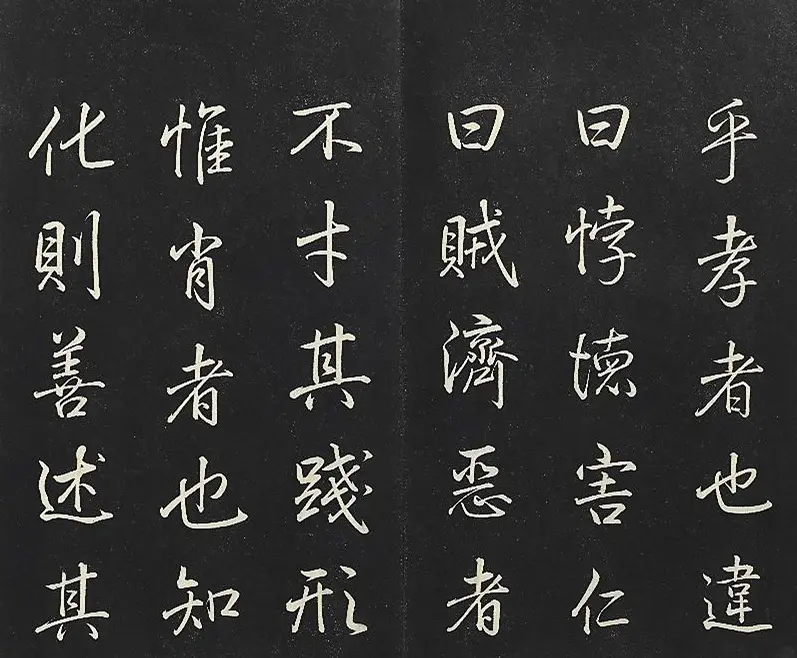 乎孝者也違
曰悖德害仁
曰賊濟惡者
不才其踐形
惟肖者也知
化則善述其